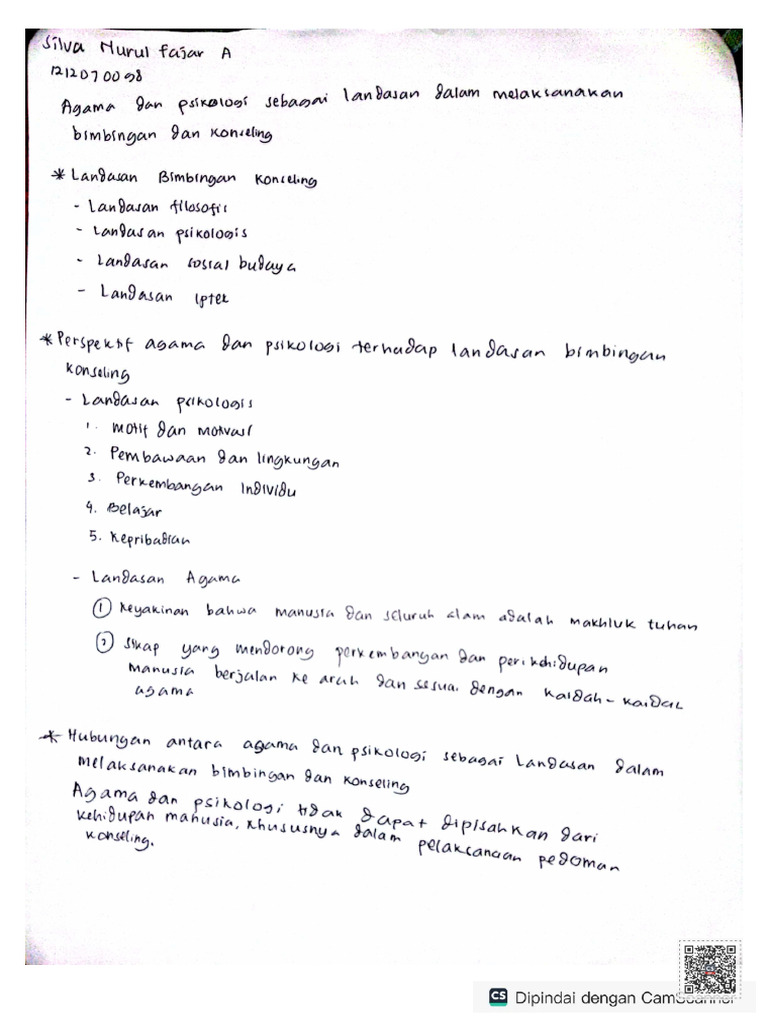 Silva Nurul Fajar A
1212070098
Agama dan psikologi sebagai landasan dalam melaksanakan
bimbingan dan konseling
* Landasan Bimbingan Konseling
- Landasan filosofis
- Landasan psikologis
- Landasan sosial budaya
- Landasan Iptek
* Perspektif agama dan psikologi terhadap landasan bimbingan
konseling
- Landasan psikologis
1. Motif dan motivasi
2. Pembawaan dan lingkungan
3. Perkembangan Individu
4. Belajar
5. Kepribadian
- Landasan Agama
① Keyakinan bahwa manusia dan seluruh alam adalah makhluk tuhan
② Sikap yang mendorong perkembangan dan perikehidupan
manusia berjalan ke arah dan sesuai dengan kaidah-kaidah
agama
* Hubungan antara agama dan psikologi sebagai Landasan dalam
melaksanakan bimbingan dan konseling
Agama dan psikologi tidak dapat dipisahkan dari
kehidupan manusia, khususnya dalam pelaksanaan pedoman
konseling.
CS Dipindai dengan CamScanner